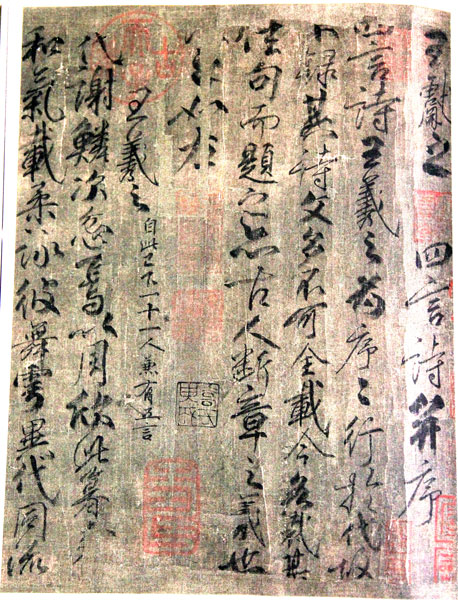 王獻之 四言詩并序
四言詩王羲之為序〻行於代故
不錄其詩文多不可全載今各裁其
佳句而題之亦古人斷章之義也
如左
王羲之 自此已下一十一人兼有五言
代謝鱗次忽焉以周欣此暮春
和氣載柔詠彼舞雩異代同流